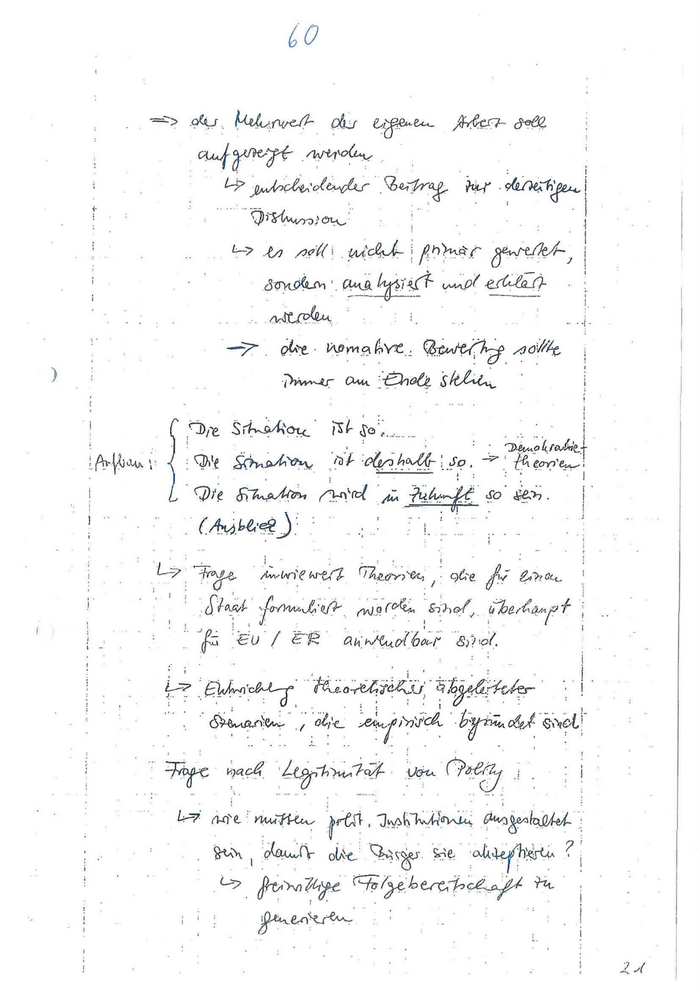 60
=> der Mehrwert der eigenen Arbeit soll
aufgezeigt werden
↳ entscheidender Beitrag zur derzeitigen
Diskussion
↳ es soll nicht primär gewertet,
sondern analysiert und erklärt
werden
→ die normative Bewertung sollte
immer am Ende stehen
Die Situation ist so.
Aufbau: { Die Situation ist deshalb so. → Demokratie-
theorien
Die Situation wird in Zukunft so sein.
(Ausblick)
↳ Frage inwieweit Theorien, die für einen
Staat formuliert worden sind, überhaupt
für EU / ER anwendbar sind.
↳ Entwicklung theoretischer abgeleiteter
Szenarien, die empirisch begründet sind
Frage nach Legitimität von Polity
↳ wie müssen polit. Institutionen ausgestaltet
sein, damit die Bürger sie akzeptieren?
↳ freiwillige Folgebereitschaft zu
generieren
21